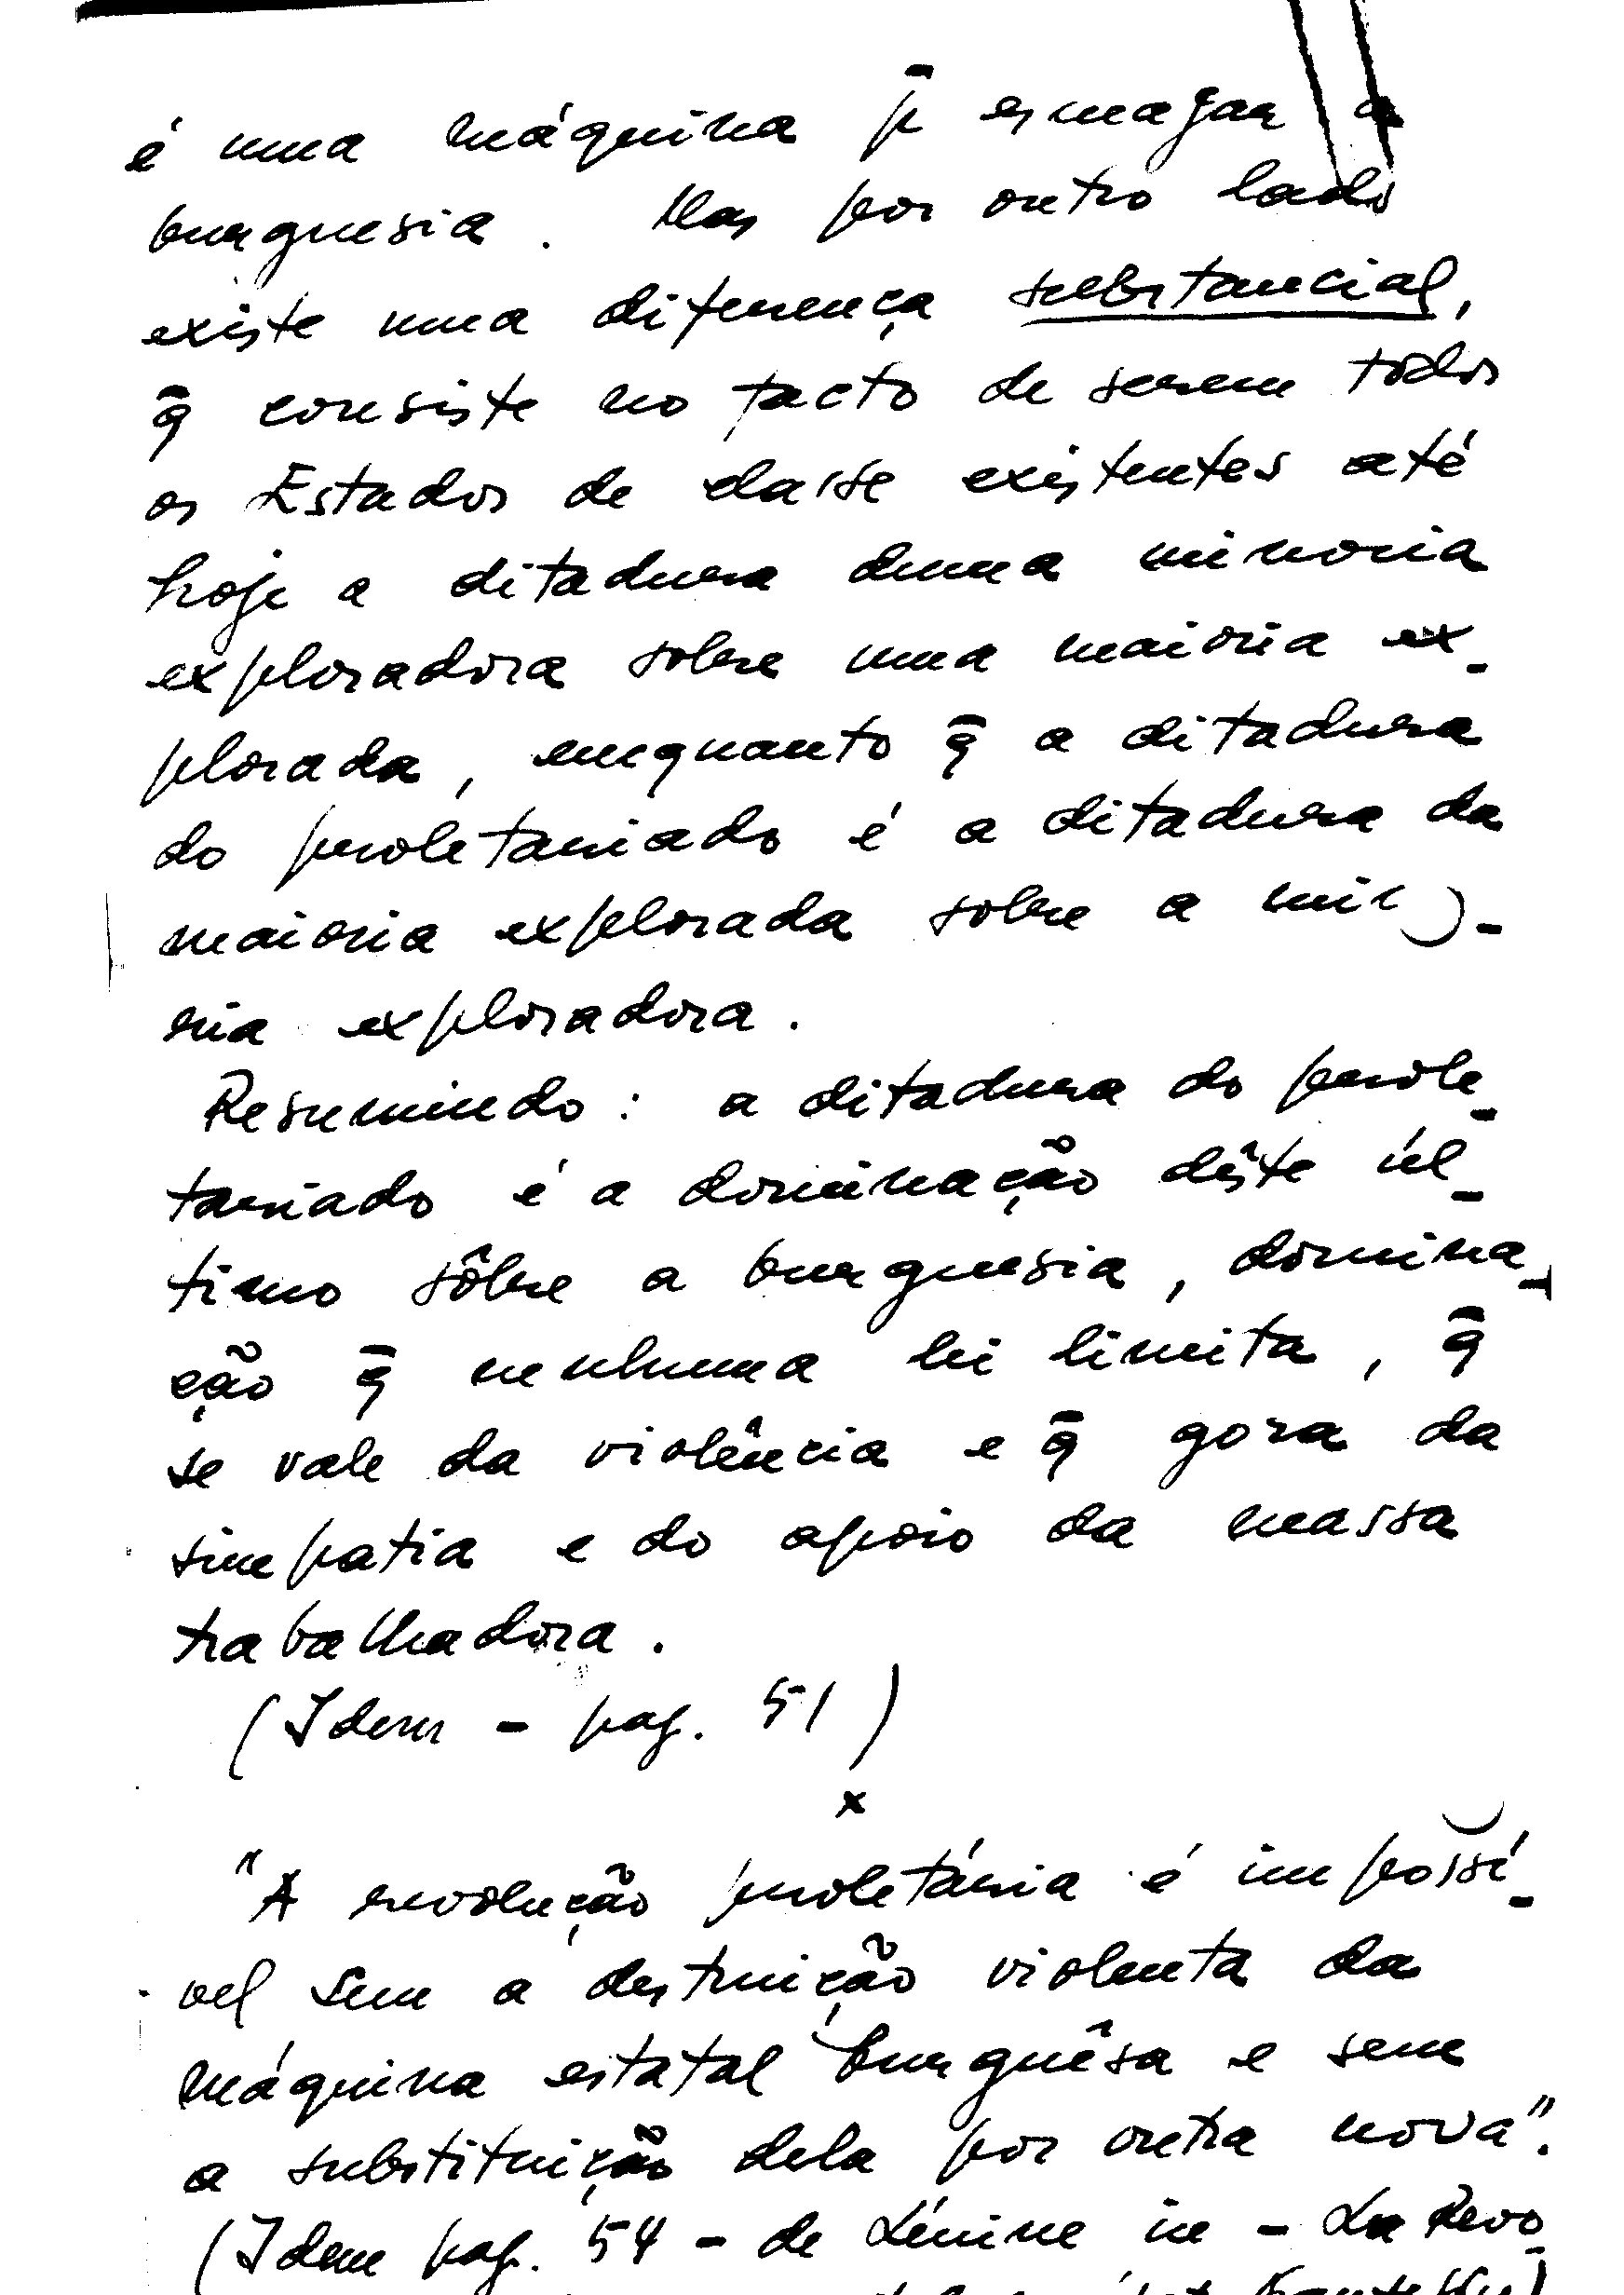 é uma máquina p̄ esmagar a
burguesia. Mas por outro lado
existe uma diferença substancial,
q̄ consiste no facto de serem todos
os Estados de classe existentes até
hoje a ditadura duma minoria
exploradora sobre uma maioria ex-
plorada, enquanto q̄ a ditadura
do proletariado é a ditadura da
maioria explorada sobre a mino-
ria exploradora.
Resumindo: a ditadura do prole-
tariado é a dominação dêste úl-
timo sôbre a burguesia, domina-
ção q̄ nenhuma lei limita, q̄
se vale da violência e q̄ goza da
simpatia e do apoio da massa
trabalhadora.
(Idem - pag. 51)
x
"A revolução proletária é impossí-
vel sem a destruição violenta da
máquina estatal burguêsa e sem
a substituição dela por outra nova".
(Idem pag. 54 - de Lénine in - La Revo-